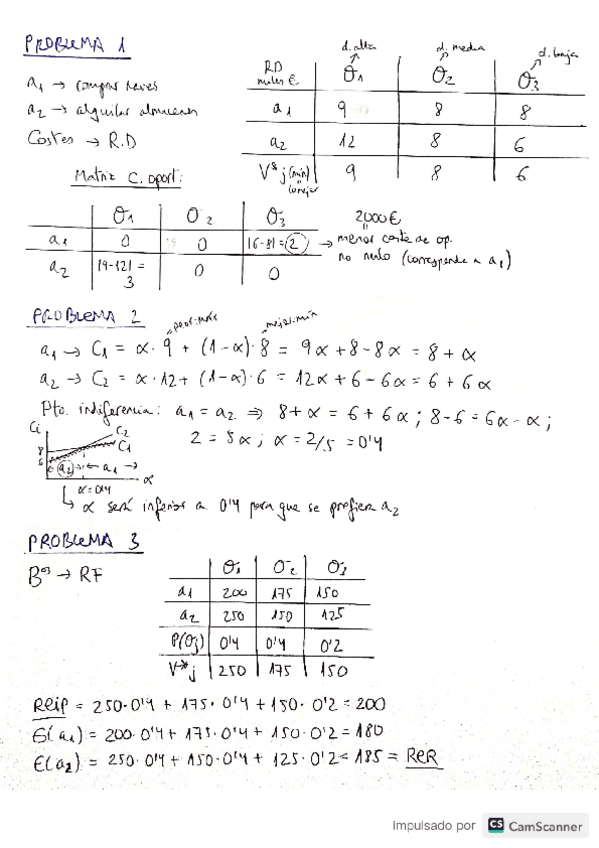 PROBLEMA 1
a1 → comprar naves
a2 → alquilar almacenes
Costes → R.D
d. alta d. media d. baja
RD miles € Θ1 Θ2 Θ3
a1 9 8 8
a2 12 8 6
V*j (min) 9 8 6
Matriz C. oport:
Θ1 Θ2 Θ3
a1 0 0 |6-8|=2 → menor coste de op.
no nulo (corresponde a a1)
2000€
a2 |9-12|= 3 0 0
PROBLEMA 2
peor:máx mejor:mín
a1 → C1 = α·9 + (1-α)·8 = 9α+8-8α = 8+α
a2 → C2 = α·12+ (1-α)·6 = 12α+6-6α = 6+6α
Pto. indiferencia: a1 = a2 ⇒ 8+α = 6+6α ; 8-6 = 6α-α ;
2 = 5α ; α = 2/5 = 0'4
Ci C2 C1
8
6 a2 ← a1 → α
α=0'4
α será inferior a 0'4 para que se prefiera a2
PROBLEMA 3
Bos → RF
Θ1 Θ2 Θ3
a1 200 175 150
a2 250 150 125
P(Θj) 0'4 0'4 0'2
V*j 250 175 150
REIP = 250·0'4 + 175·0'4 + 150·0'2 = 200
E(a1) = 200·0'4 + 175·0'4 + 150·0'2 = 180
E(a2) = 250·0'4 + 150·0'4 + 125·0'2 = 185 = RER
Impulsado por CS CamScanner